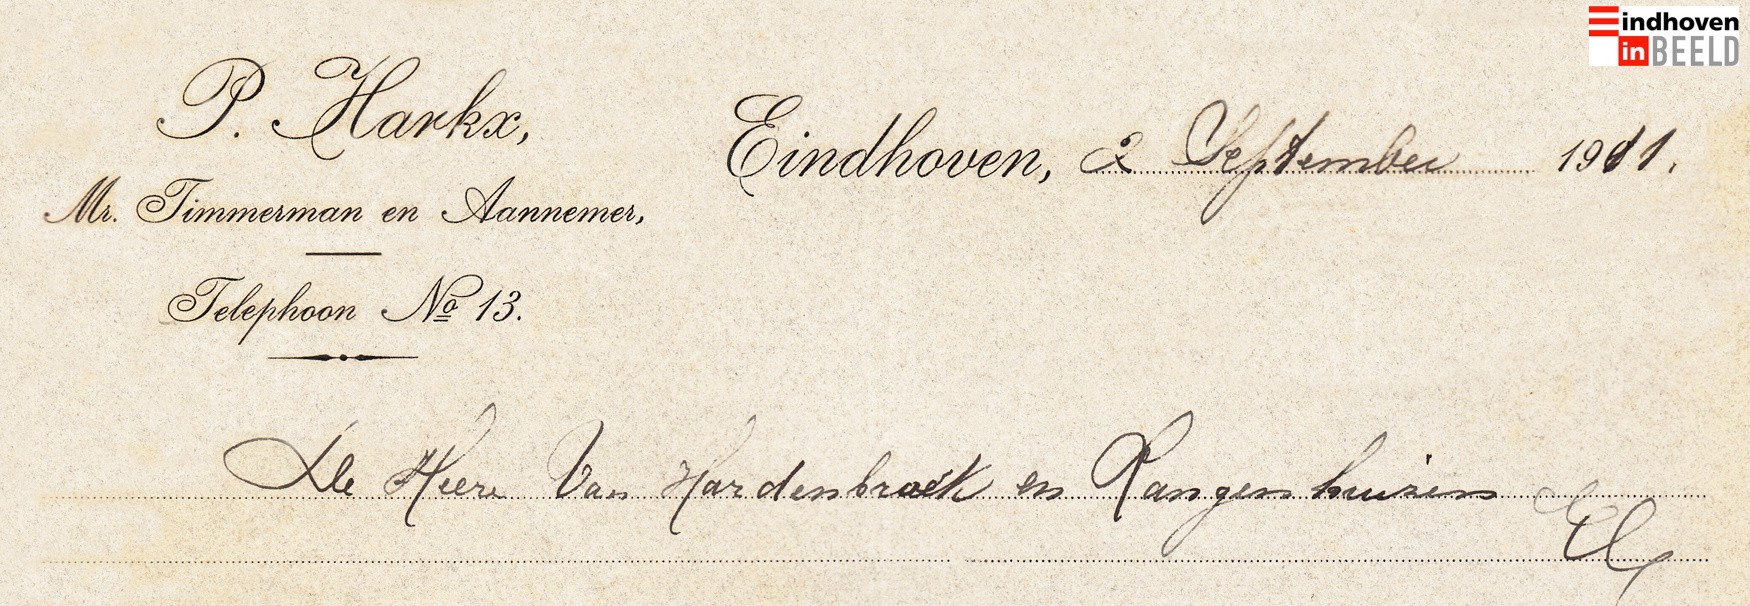 Eindhoven
in BEELD
P. Harkx,
Eindhoven, 2 September 1911.
Mr. Timmerman en Aannemer,
Telephoon No 13.
De Heere Van Hardenbroek en Rangenhuizen